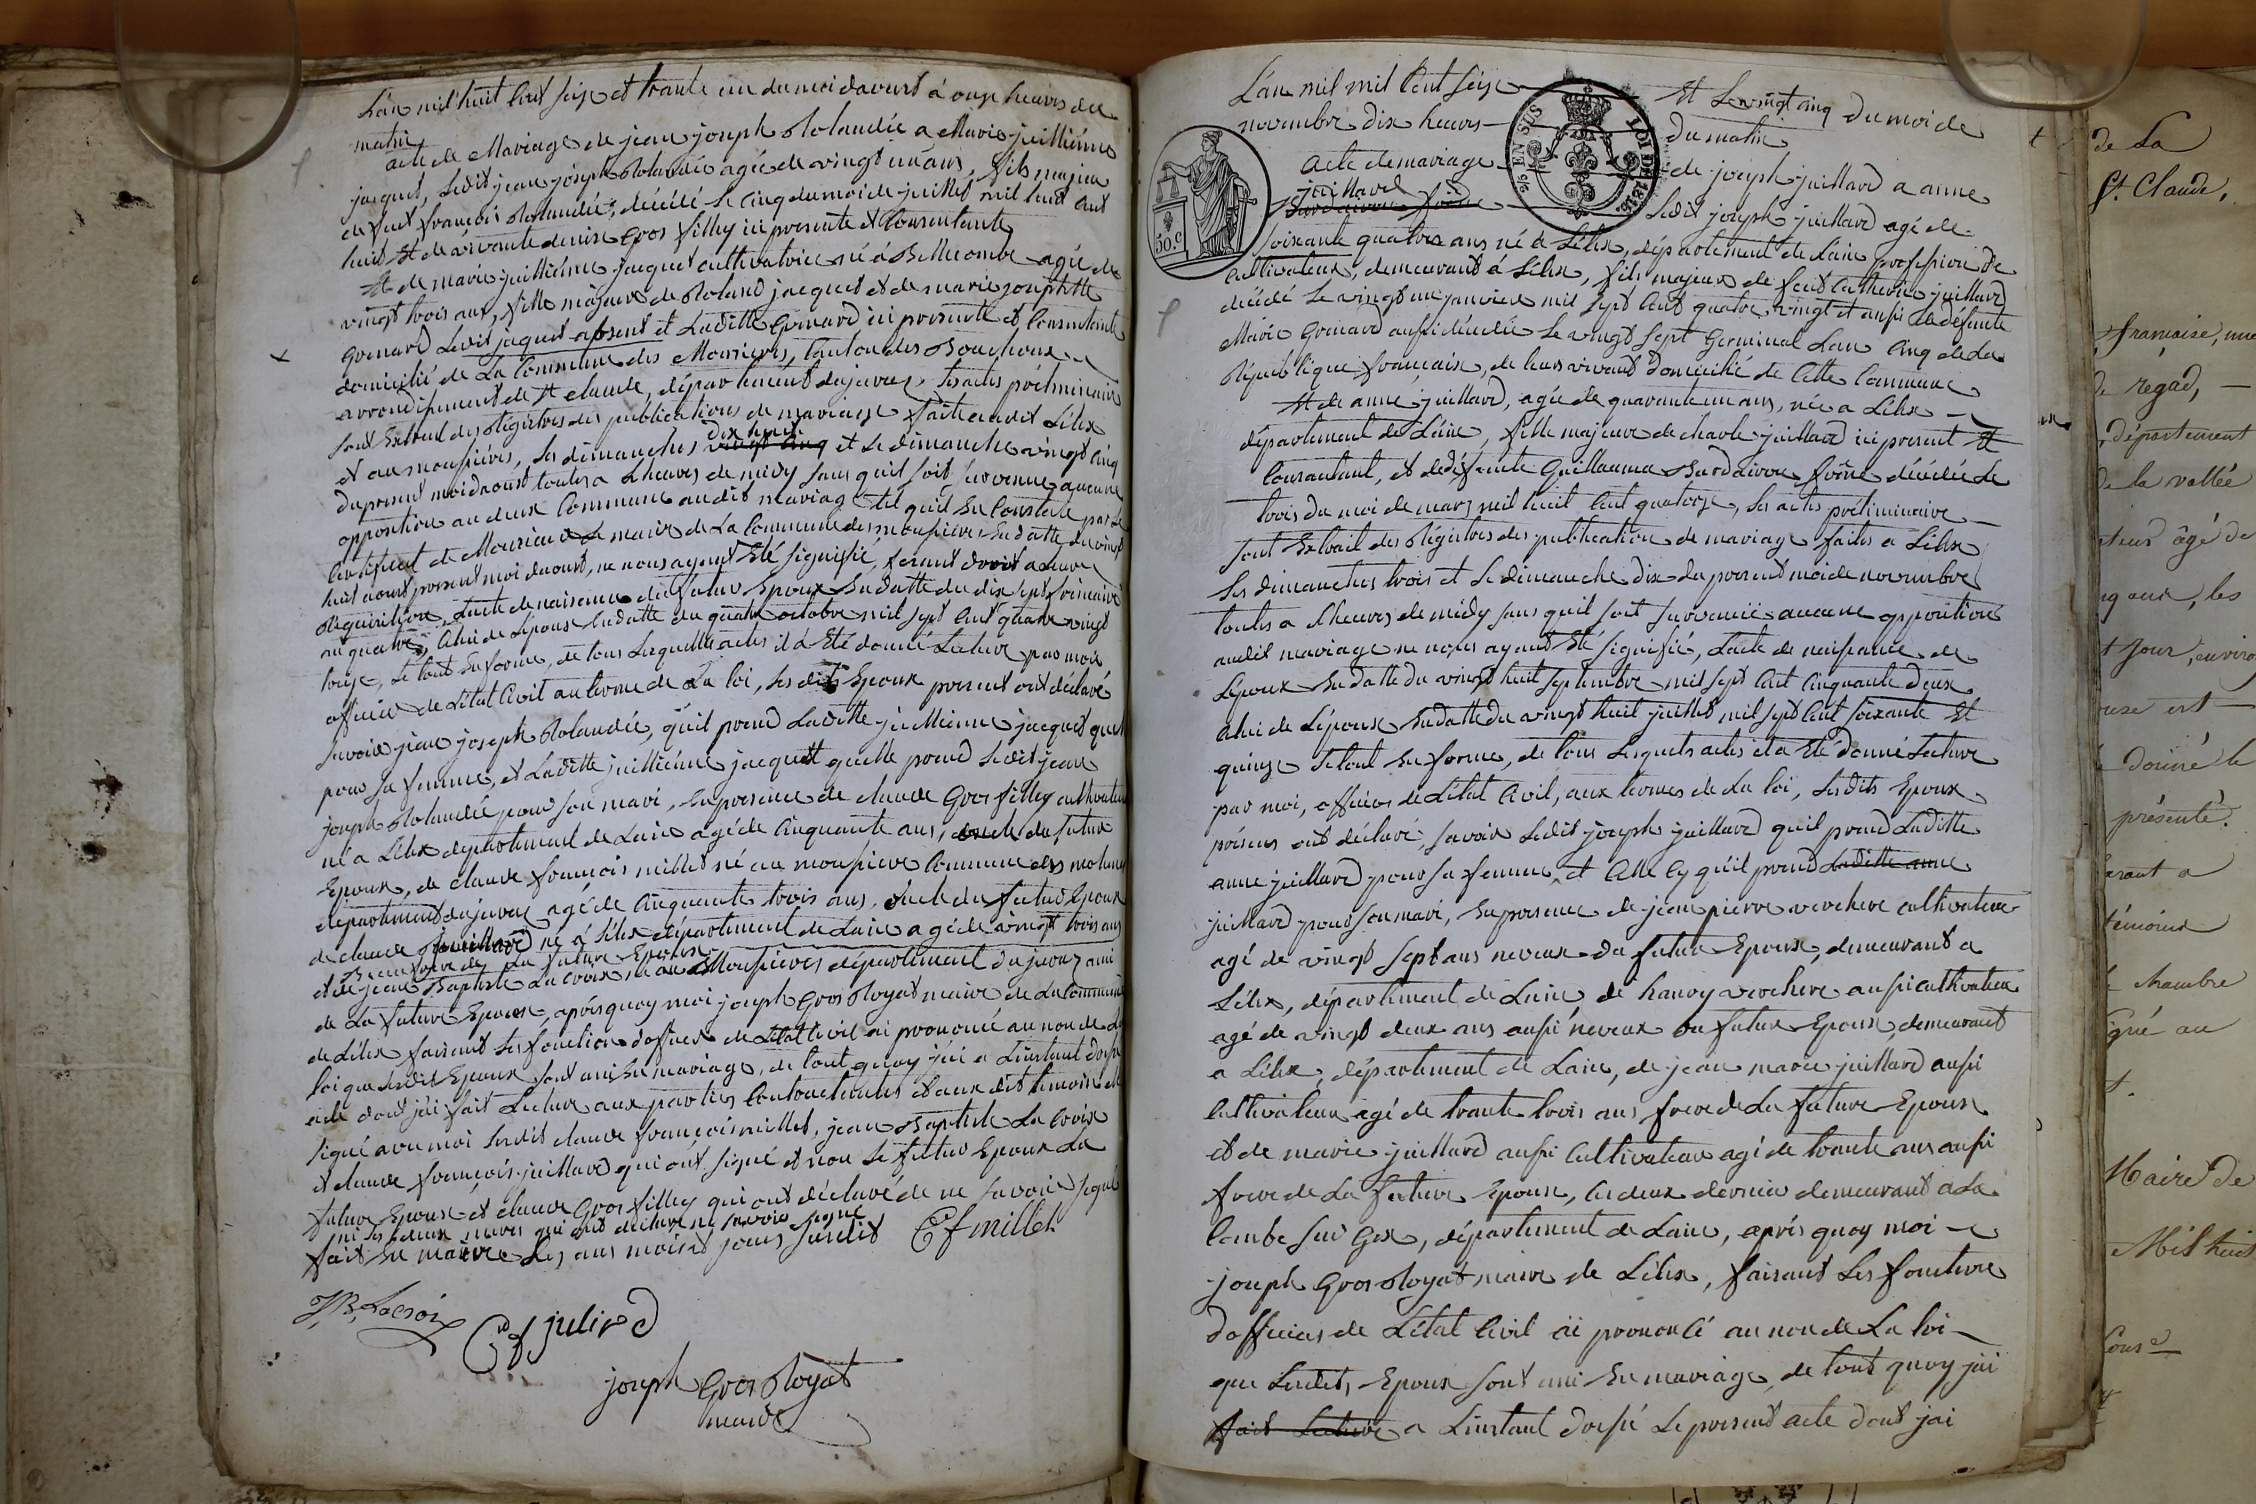 L'an mil huit Cent seize et trante un du moi daoust à onze heures du
matin
acte de Mariage de jean joseph Rolandée a Marie juillienne
jacquet, ledit jean joseph Rolandée agée de vingt un ans, fils majeur
de feut françois Rolandée, décédé le cinq du moi de juillet mil huit Cent
huit Et de vivante denise Gros fillez ici presente et Consentante
Et de marie juillienne jacquet cultivatrice né à Bellecombe agée de
vingt trois ans, fille majeure de Roland jacquet et de marie josephtte
Grenard ledit jacquet absent et Laditte Grenard ici presente et Consentante
domicilié de La Commune des Moussieres, Canton des Bouchoux
arrondissement de St claude, département du jura, les actes préliminaire
sont Extrait des Régistres des publications de mariage faite audit Lélex
et au moussiéres, les dimanches dix huit vingt cinq et le dimanche vingt cinq
du present moi daoust toutes a Lheures de midy sans quil soit survenue aucune
opposition au deux Commune audit mariage tel quil En Constate par le
Certificat de Monsieur Le maire de La Commune des moussieres En datte du vingt
huit aoust present moi daoust, ne nous ayant Eté signifié, ferant droit a leur
Réquisition, Lacte de naissance du futur Epoux En datte du dix sept
quatre, Celui de Lépouse En datte du quatre octobre mil sept Cent quatre vingt
treize, le tout En forme, de tous Lesquelle actes il à Eté donné Lecture par moi
officier de Létat Civil au terme de La loi, les dits Epoux present ont déclaré
savoir jean joseph Rolandée, quil prend Laditte juillienne jacquet
pour sa femme, et Laditte juillienne jacquet quelle prend ledit jean
joseph Rolandée pour son mari, En presence de claude Gros fillez cultivateur
né a Lélex département de Lain agé de Cinquante ans, oncle du futur
Epoux, de claude françois millet né au moussiere Commune des molunes
département du jura agé de Cinquante trois ans, oncle du futur Epoux
de claude juillard né a Lélex département de Lain agé de vingt trois ans
Beau frere de La future Epouse
et de jean Baptiste La croix, né au Moussieres département du jura, ami
de La future Epouse, aprés quoy moi joseph Gros Royat maire de La Commune
de Lélex faisant les fonction dofficier de Létat Civil ai prononcé au non de La
loi que lesdit Epoux sont uni En mariage, de tout quoy jai a Linstant dressé
acte dont jai fait Lecture aux parties Contractantes et aux dits temoins
signé avec moi lesdit claude françois millet, jean Baptiste La Croix
et claude françois juillard qui ont signé et non le futur Epoux La
future Epouse et claude Gros fillez qui ont déclaré de ne savoir signé
ni les deux meres qui ont déclare ne savoir signé
fait En mairie Les ans mois et jours susdit
C f millet
J, B, Lacroix
C f julird
joseph Gros Royat
maire
L'an mil mil Cent seize Et Le vingt cinq du moi de
novembre dix heures du matin
acte de mariage de joseph juillard a anne
juillard
ledit joseph juillard agé de
soixante quatre ans né à Lélex, département de Lain profession de
Cultivateur, demeurant à Lélex, fils majeur de feut Catherin juillard
décédé le vingt un janvier mil sept Cent quatre vingt et aussi de défunte
Marie Grenard aussi décédée Le vingt sept Germinal Lan Cinq de La
République française, de leurs vivant domicilié de Cette Commune
Et de anne juillard, agée de quarante un ans, née a Lélex
département de Laine, fille majeure de charle juillard ici present Et
Consentant, et de défunte Guillauma Burdairon frône décédée Le
trois du moi de mars mil huit Cent quatorze, Les actes préliminaire
sont Extrait des Régistres des publication de mariage faites a Lélex
Les dimanches trois et le dimanche dix du present moi de novembre
toutes a Lheures de midy sans quil soit survenüe aucune opposition
audit mariage ne nous ayant Eté signifié, Lacte de naissance de
Lépoux En datte du vingt huit septembre mil sept Cent Cinquante deux
Celui de Lépouse En datte du vingt huit juillet mil sept Cent soixante Et
quinze Le tout En forme, de tous Lesquels actes il a Eté donné Lecture
par moi, officier de Létat Civil, aux termes de La loi, Lesdits Epoux
présens ont déclaré, savoir Ledit joseph juillard quil prend Laditte
anne juillard pour sa femme, et Celle Cy qu'il prend Laditte anne
juillard pour son mari, En presence de jean pierre verchere cultivateur
agé de vingt sept ans neveux du futur Epoux, demeurant a
Lélex, département de Lain, de hanry verchere aussi cultivateur
agé de vingt deux ans aussi neveux du futur Epoux demeurant
a Lélex, département de Lain, de jean marie juillard aussi
Cultivateur agé de trante trois ans frere de La future Epouse
et de marie juillard aussi Cultivateur agé de trante ans aussi
frere de La future Epouse, Les deux dernier demeurant a La
Combe sur Gex, département de Lain, aprés quoy moi
joseph Gros Royat maire de Lélex, faisant Les fonctions
dofficier de Létat Civil ai prononcé au non de La loi
que Lesdits, Epoux sont uni En mariage, de tout quoy jai
fait Lecture a Linstant dressé Le present acte dont jai
50.C
EN SUS
LOI DE 1816.
de La
St. Claude,
française, une
de régad,
département
de la vallée
âgé de
ans, les
jour, enviro
est
donné le
présenté.
témoins
chambre
au
Maire de
Mil huit